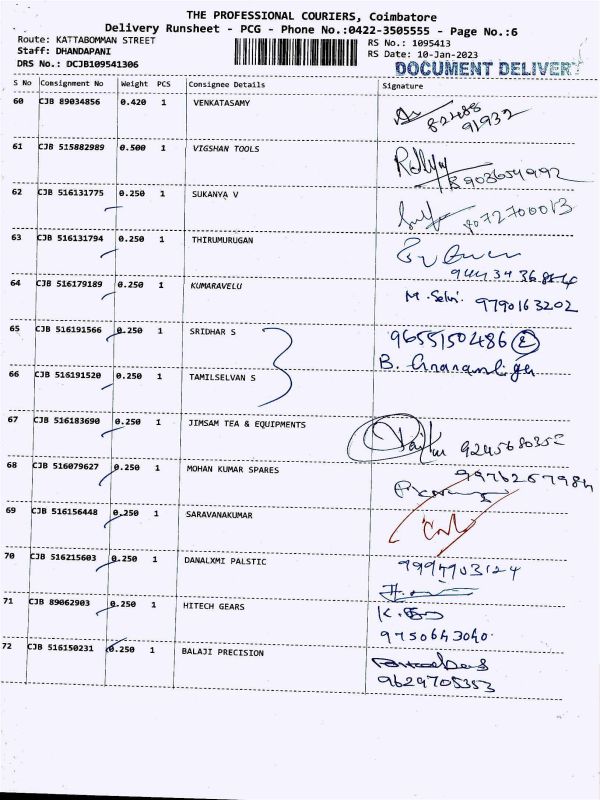 THE PROFESSIONAL COURIERS, Coimbatore
Delivery Runsheet - PCG - Phone No.:0422-3505555 - Page No.:6
Route: KATTABOMMAN STREET RS No.: 1095413
Staff: DHANDAPANI RS Date: 10-Jan-2023
DRS No.: DCJB109541306 DOCUMENT DELIVERY
S No Consignment No Weight PCS Consignee Details Signature
60 CJB 89034856 0.420 1 VENKATASAMY
82488
91932
61 CJB 515882989 0.500 1 VIGSHAN TOOLS
8903654992
62 CJB 516131775 0.250 1 SUKANYA V
8072700013
63 CJB 516131794 0.250 1 THIRUMURUGAN
64 CJB 516179189 0.250 1 KUMARAVELU M. Selvi. 9790163202
65 CJB 516191566 0.250 1 SRIDHAR S 9655150486 2
66 CJB 516191520 0.250 1 TAMILSELVAN S B.
67 CJB 516183690 0.250 1 JIMSAM TEA & EQUIPMENTS 9245680352
68 CJB 516079627 0.250 1 MOHAN KUMAR SPARES 9976267984
69 CJB 516156448 0.250 1 SARAVANAKUMAR
70 CJB 516215603 0.250 1 DANALXMI PALSTIC
71 CJB 89062903 0.250 1 HITECH GEARS K.
9750643040.
72 CJB 516150231 0.250 1 BALAJI PRECISION
9629705353